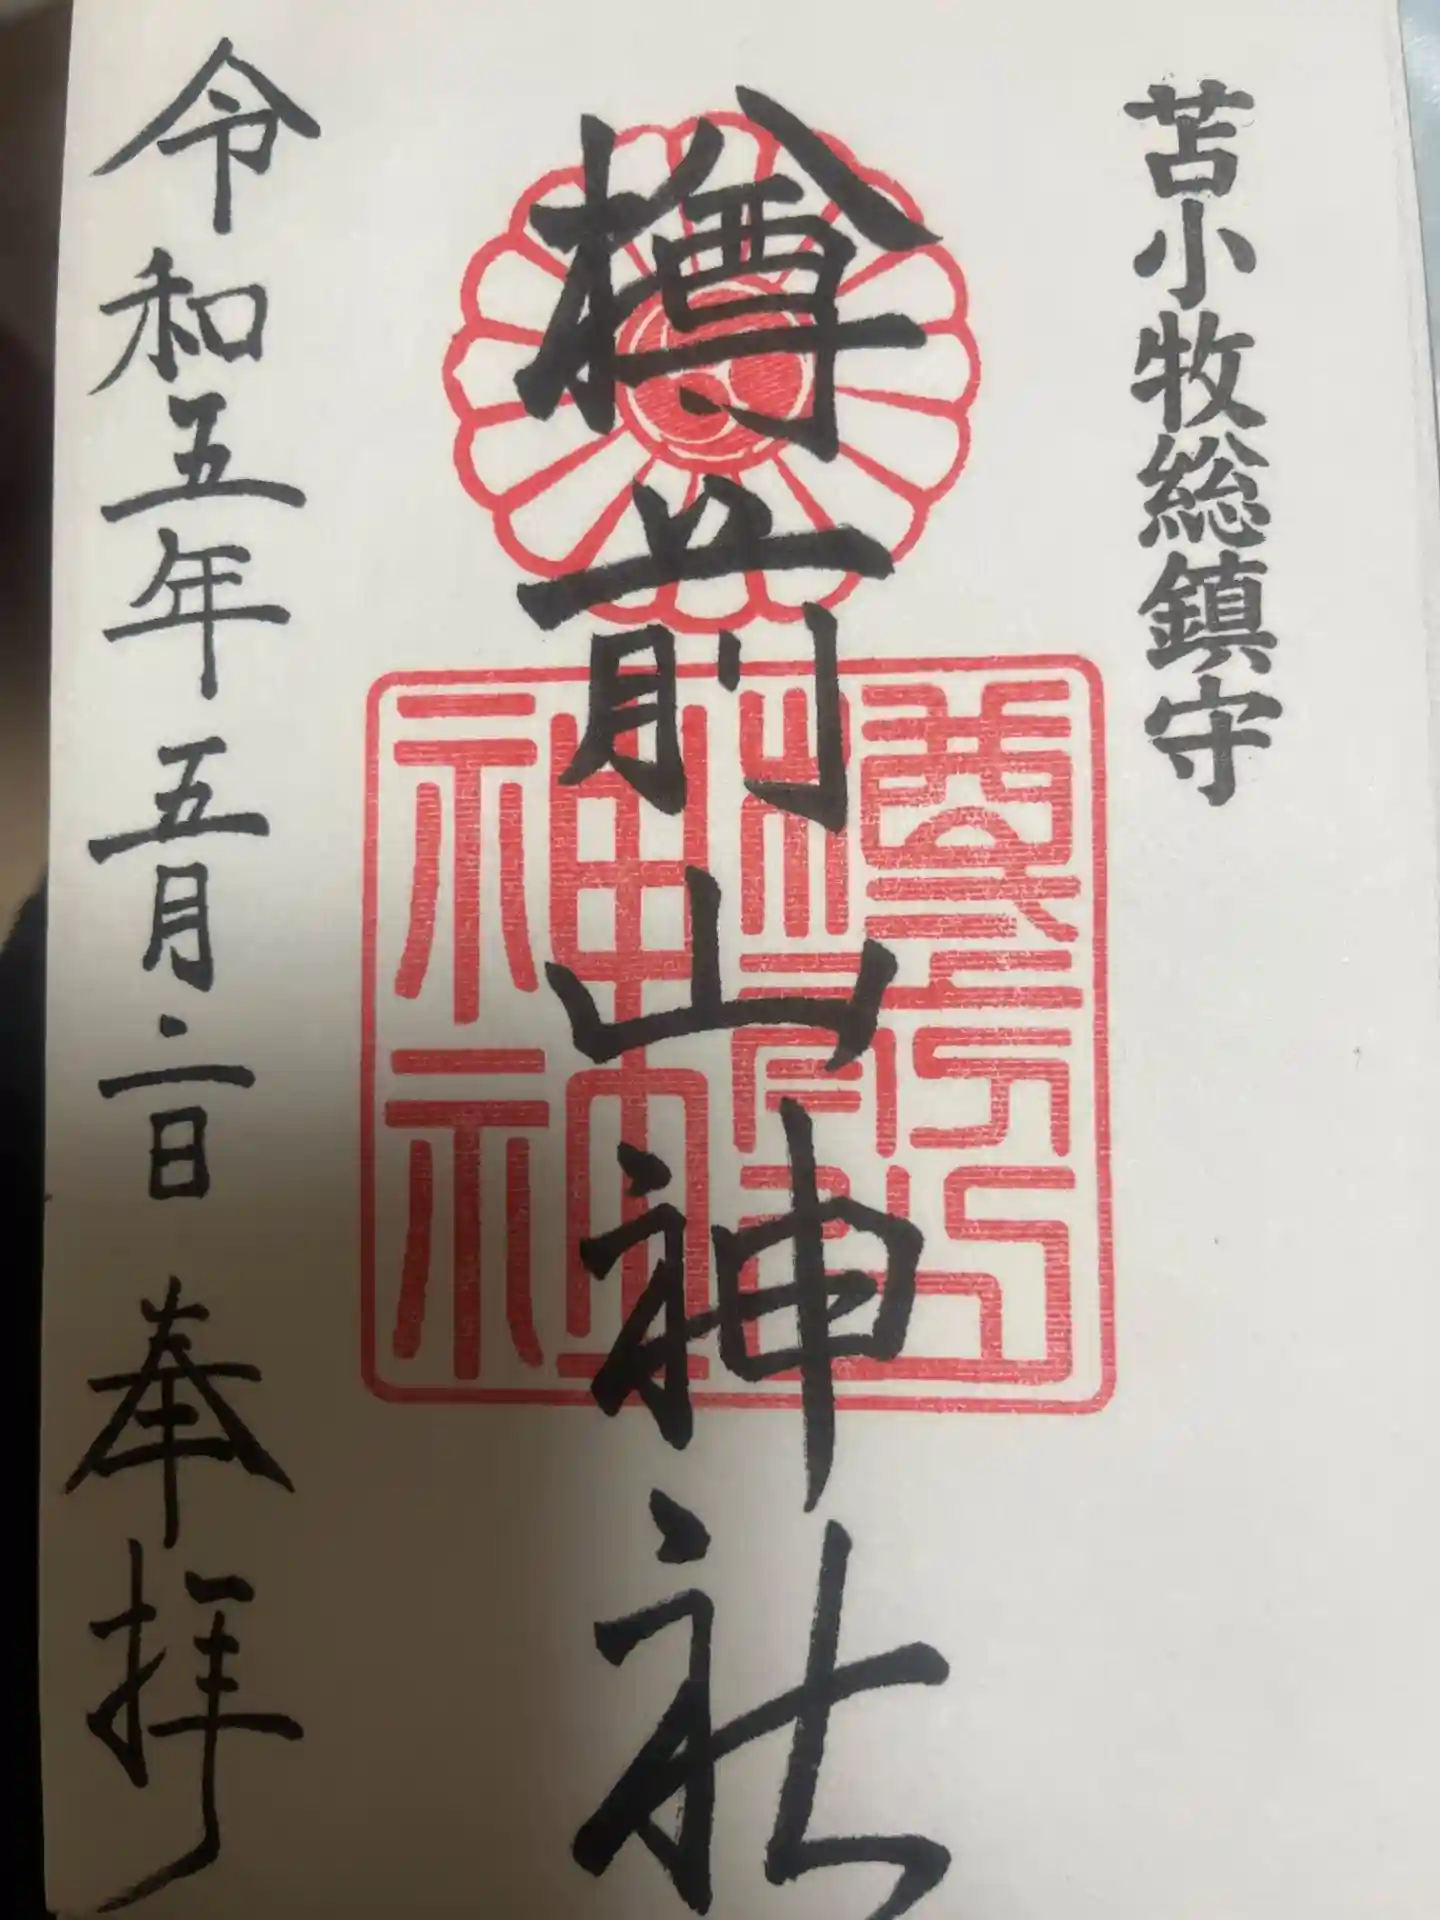 苫小牧総鎮守
樽前山神社
令和五年五月二日 奉拝